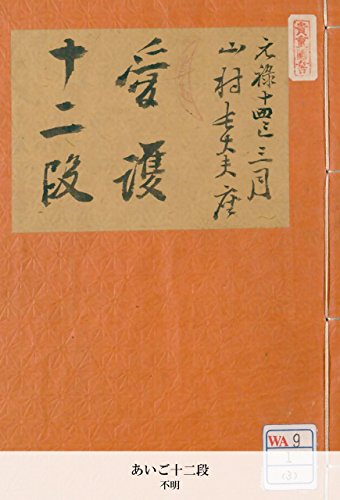 貴重図書
元禄十四巳三月
山村長太夫座
愛護
十二段
WA 9
1
(3)
あいご十二段
不明